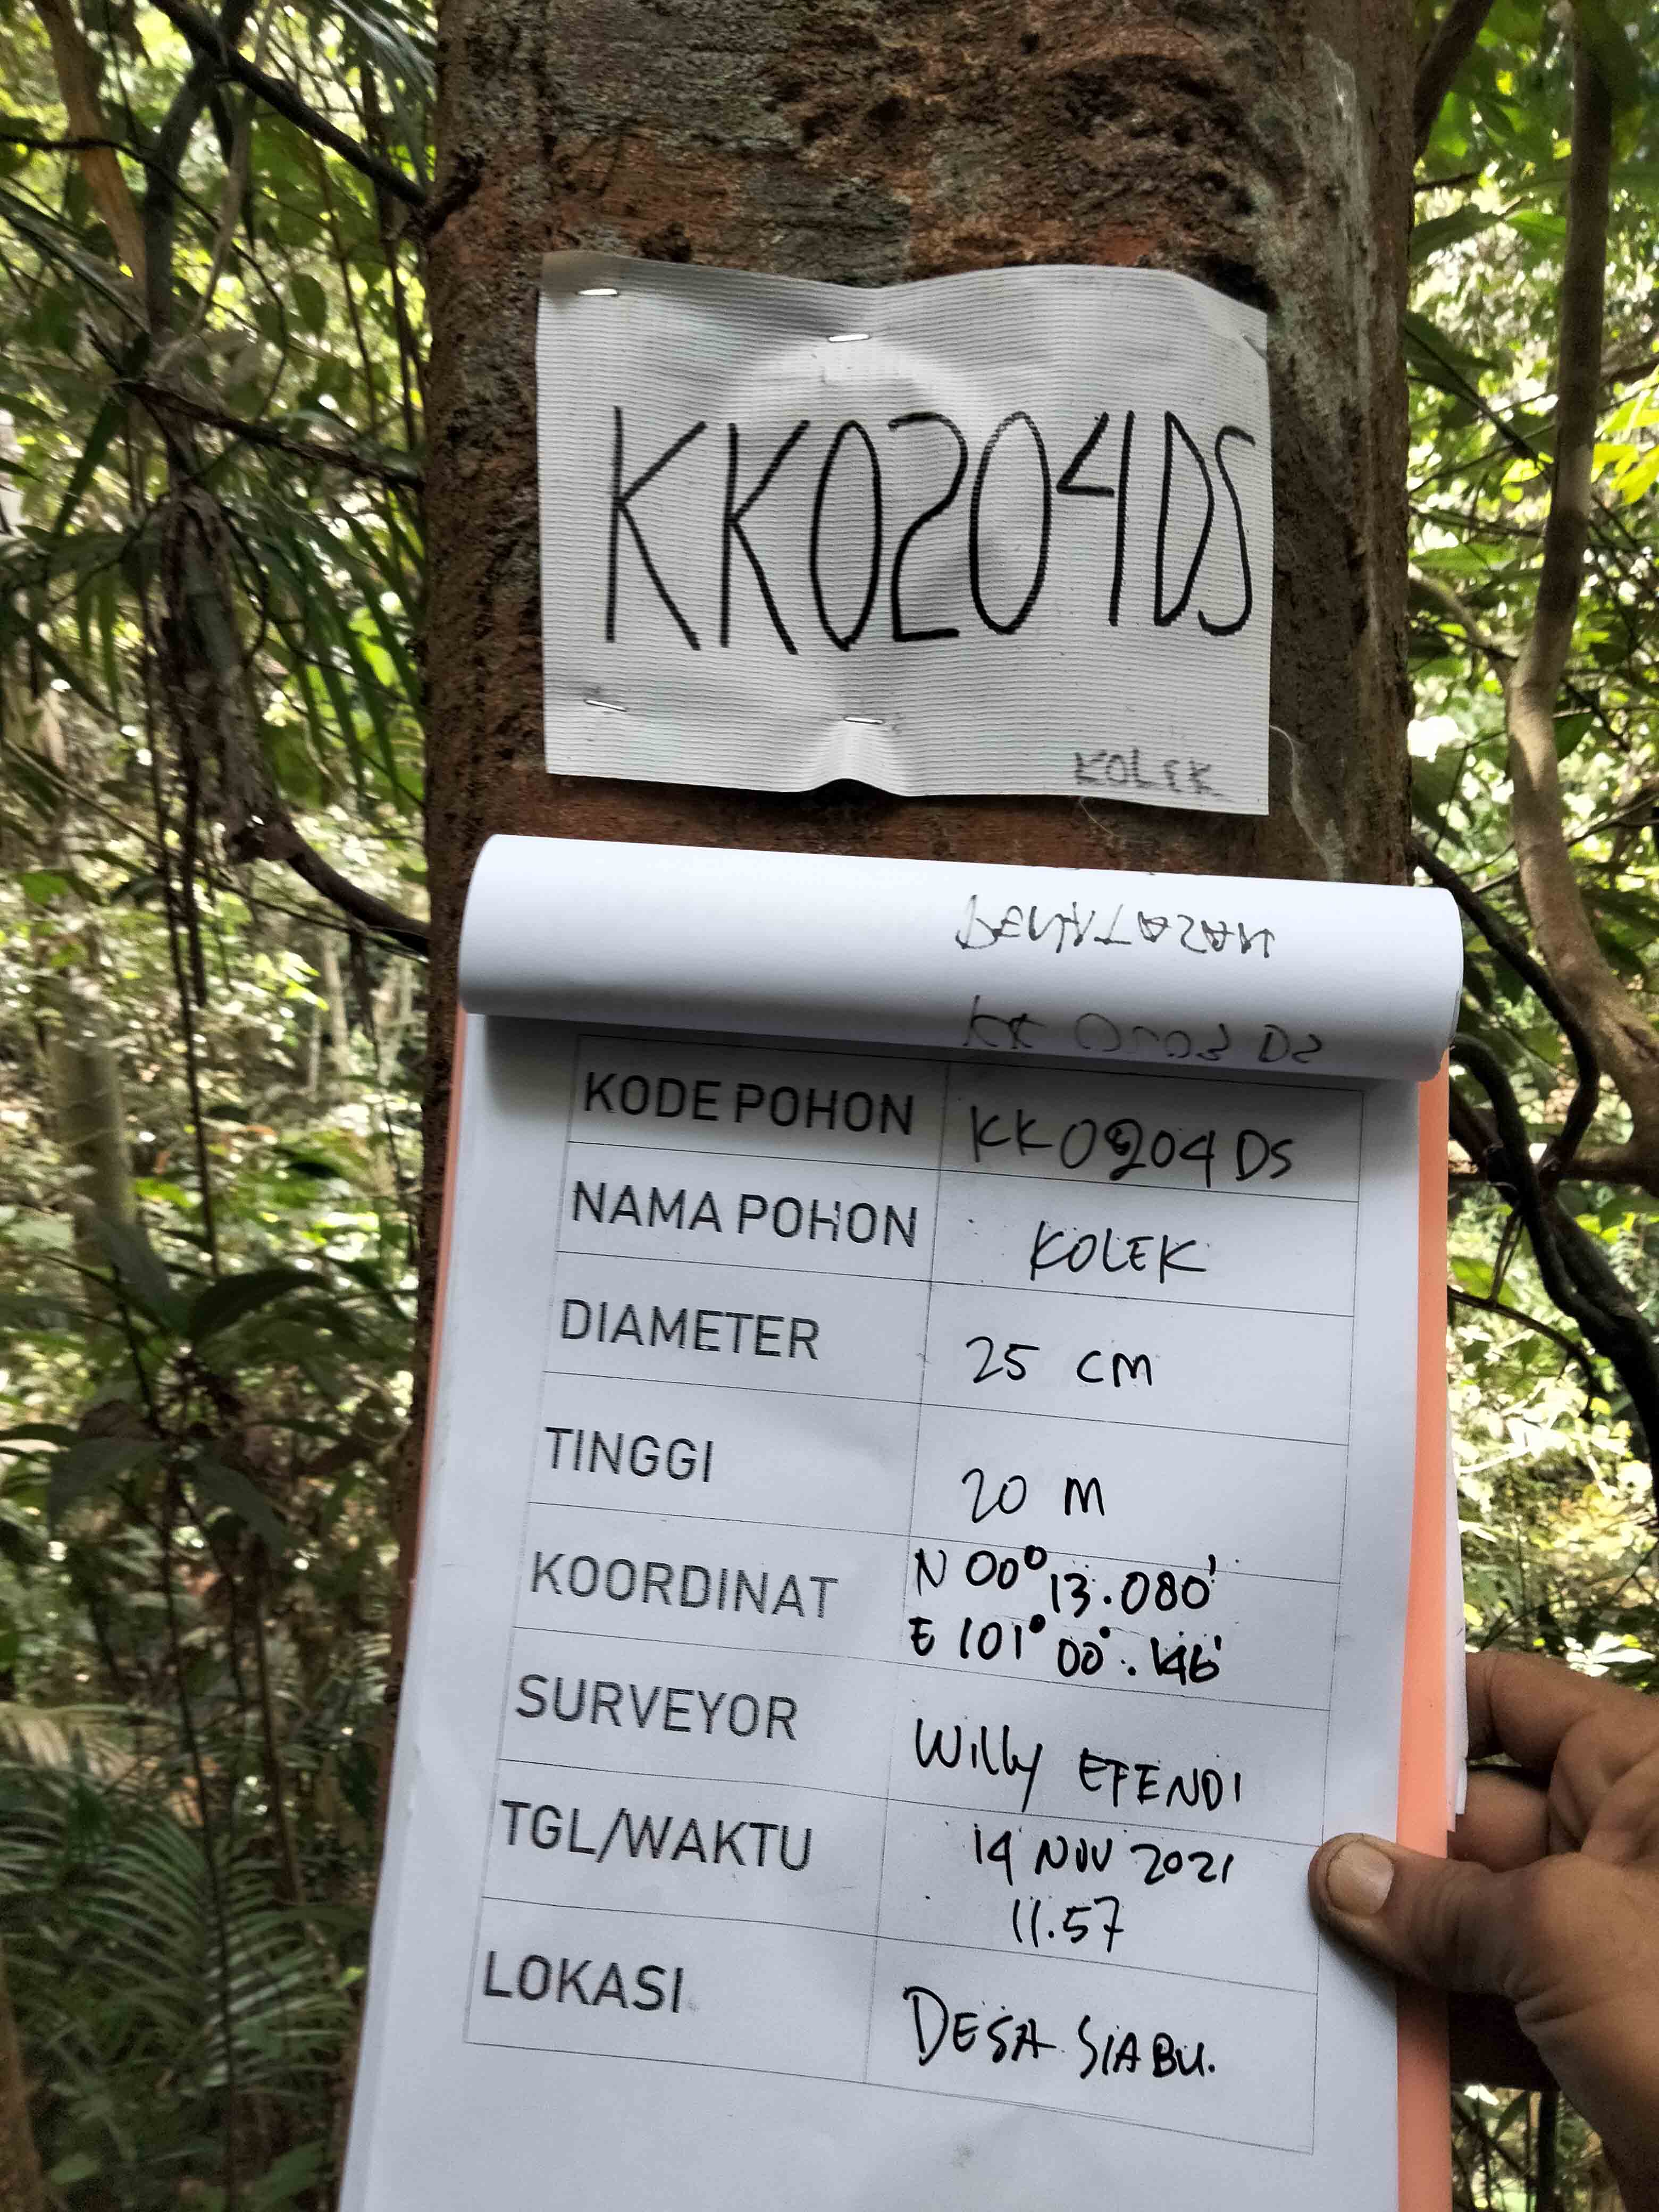 KK0204DS
KOLEK
KODE POHON KK0204DS
NAMA POHON KOLEK
DIAMETER 25 CM
TINGGI 20 M
KOORDINAT N 00° 13.080'
E 101° 00°. 146'
SURVEYOR Willy EFENDI
TGL/WAKTU 14 NOV 2021
11.57
LOKASI DESA SIABU.